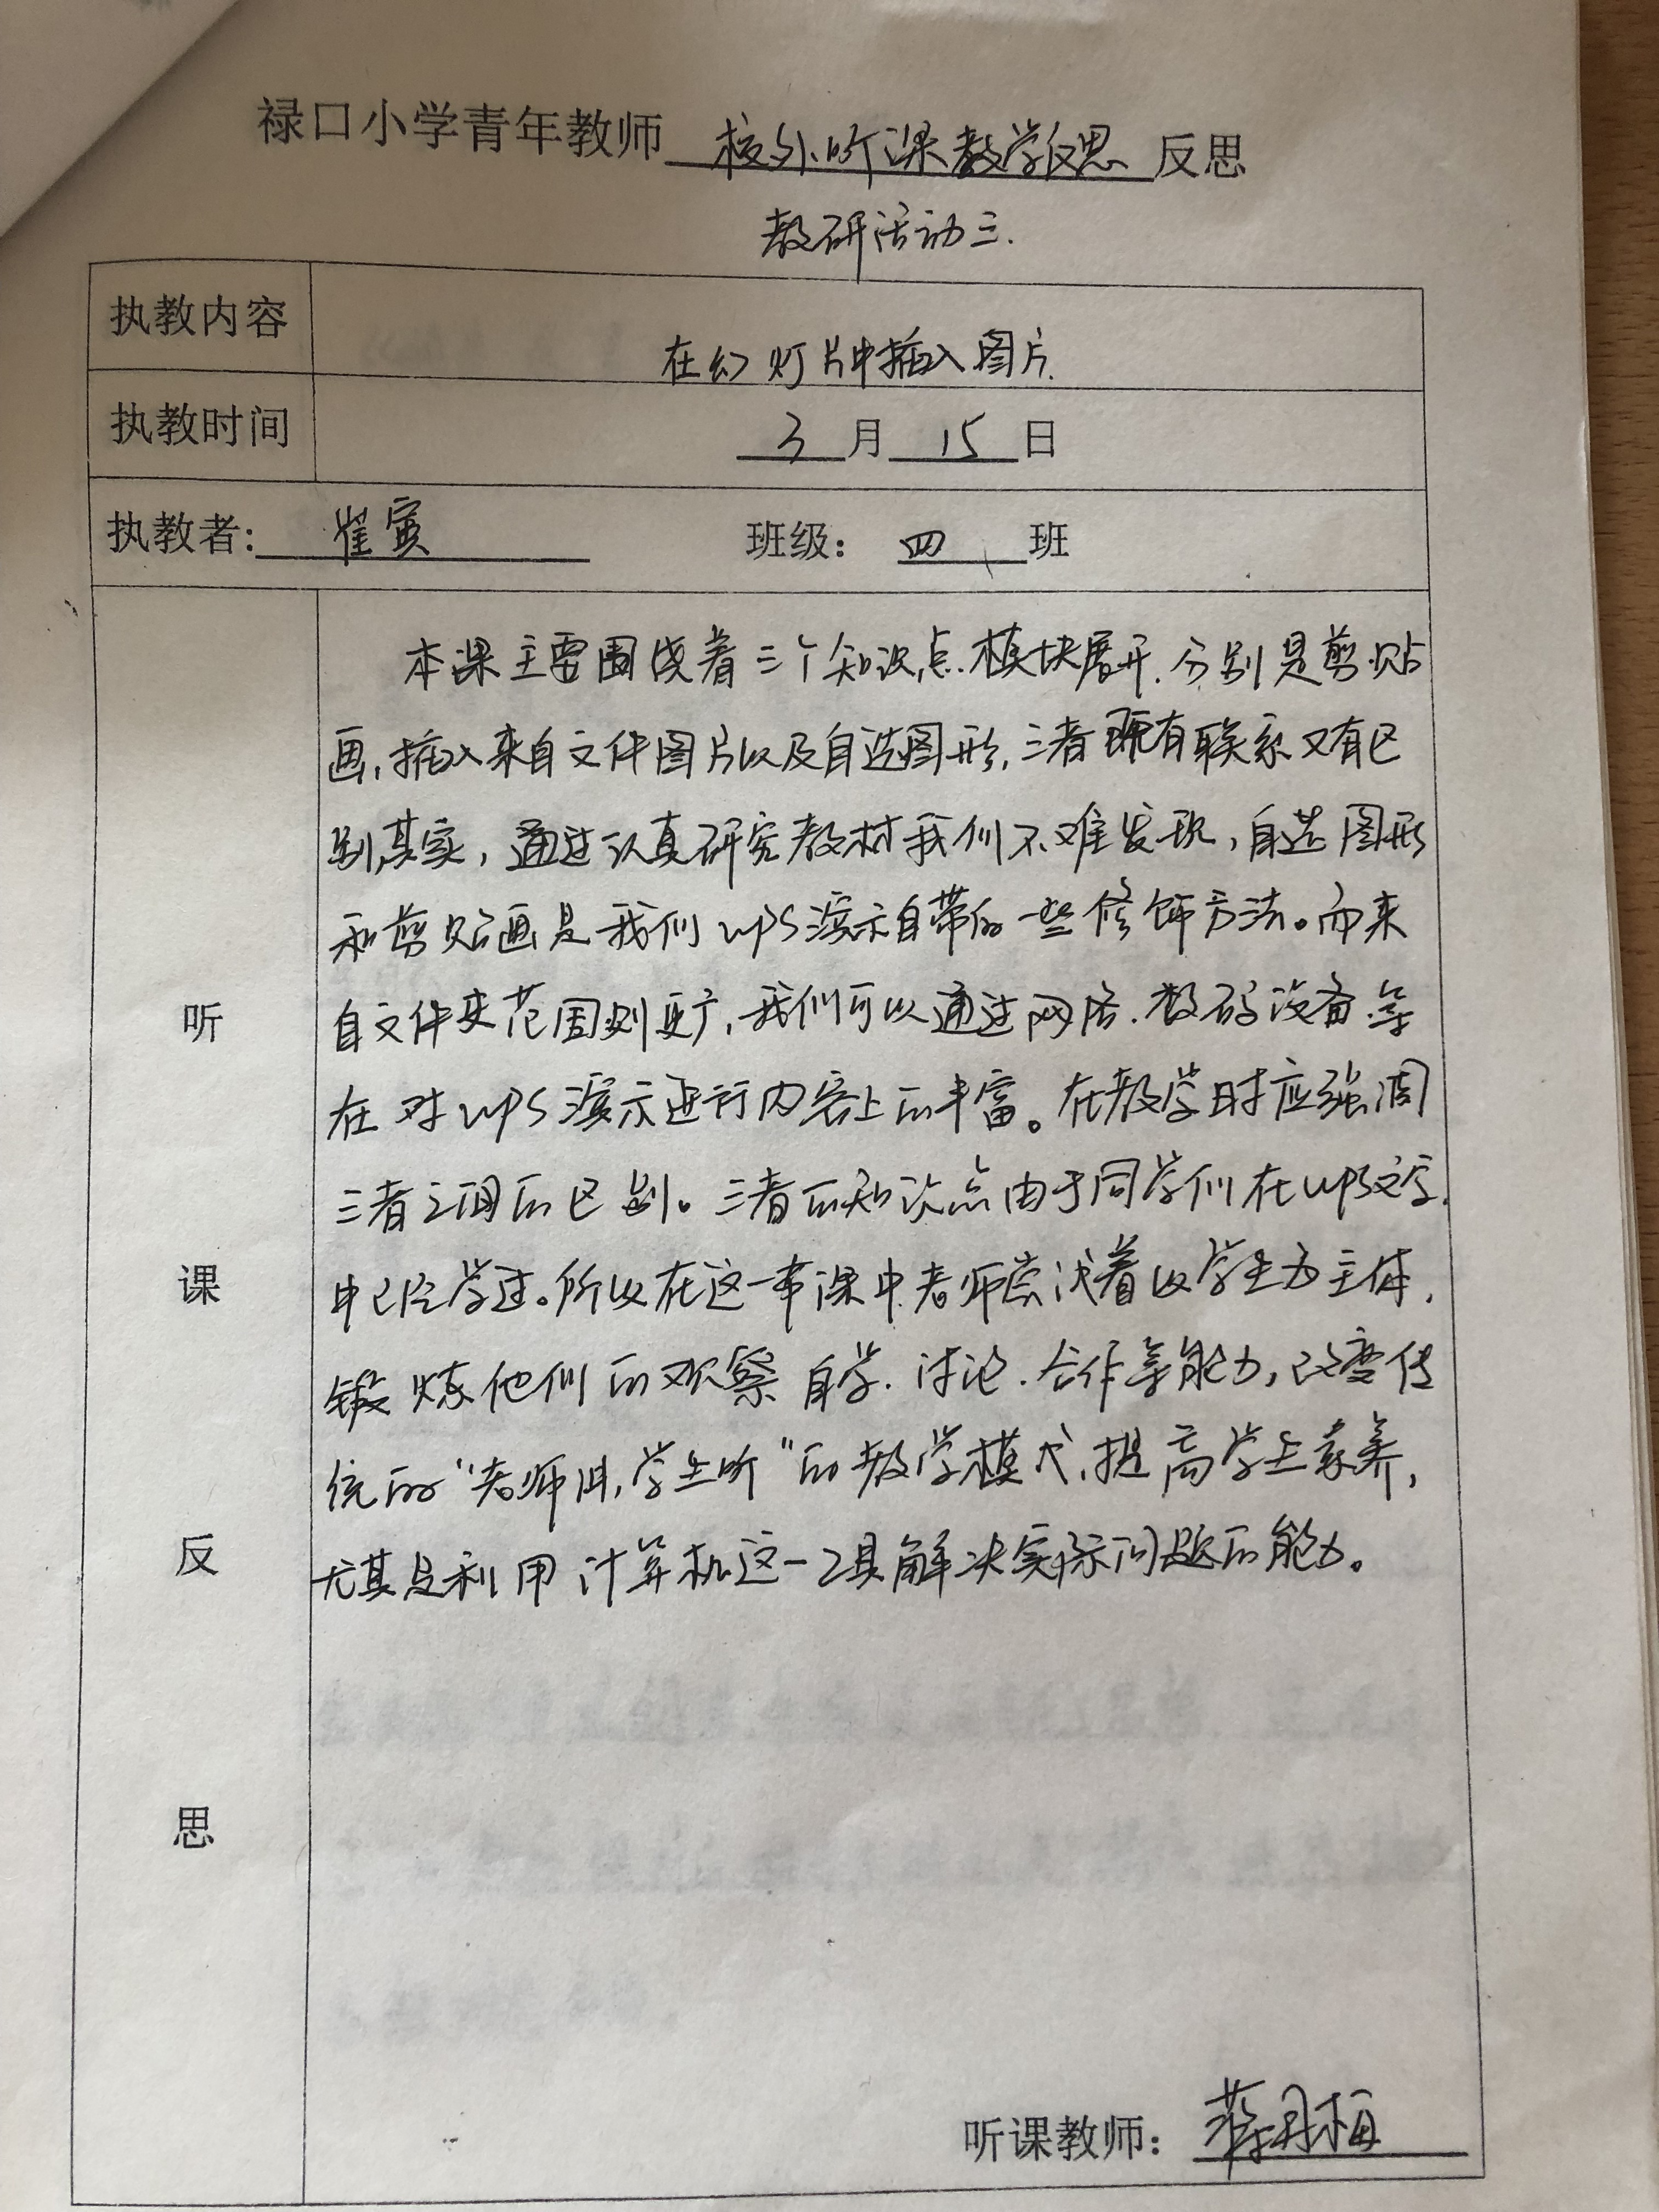 禄口小学青年教师 校外听课教学反思 反思
教研活动三.
执教内容 在幻灯片中插入图片.
执教时间 3 月 15 日
执教者: 崔寅 班级: 四 班
听课反思
本课主要围绕着三个知识点.模块展开.分别是剪贴
画,插入来自文件图片以及自选图形,三者既有联系又有区
别,其实,通过认真研究教材我们不难发现,自选图形
和剪贴画是我们wps演示自带的一些修饰方法。而来
自文件来范围则更广,我们可以通过网络.数码设备等
在对wps演示进行内容上的丰富。在教学时应强调
三者之间的区别。三者的知识点由于同学们在wps文字
中已经学过。所以在这一节课中老师尝试着以学生为主体,
锻炼他们的观察 自学.讨论.合作等能力,改变传
统的“老师讲,学生听”的教学模式,提高学生素养,
尤其是利用计算机这一工具解决实际问题的能力。
听课教师: 蒋月梅